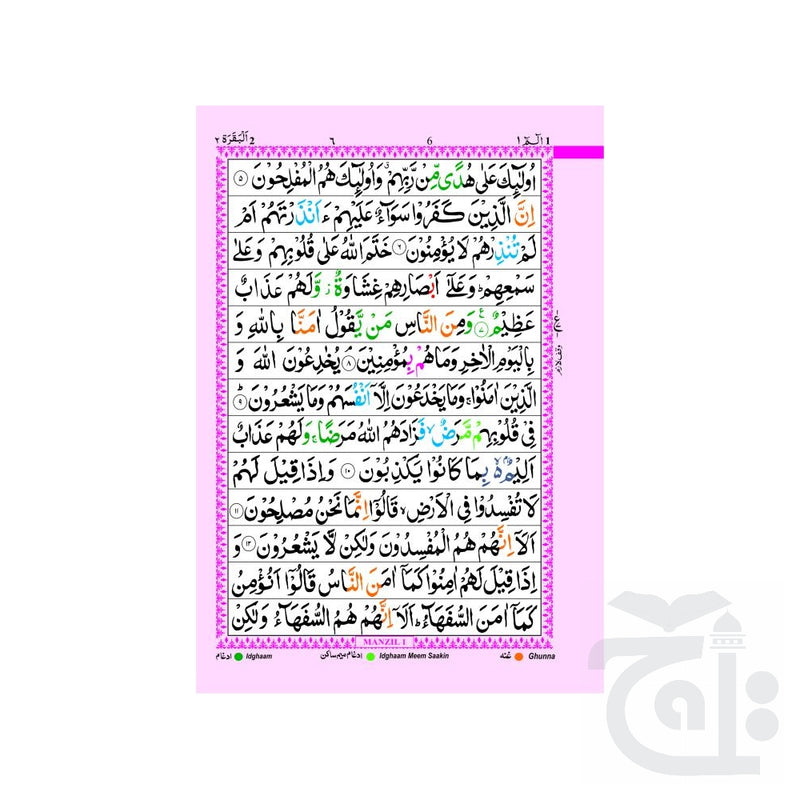 1 الٓمّٓ ١ 6 ٦ 2 اَلْبَقَرَة ٢
اُولٰٓئِكَ عَلٰى هُدًى مِّنْ رَّبِّهِمْ ۙ وَاُولٰٓئِكَ هُمُ الْمُفْلِحُوْنَ ۝۵
اِنَّ الَّذِيْنَ كَفَرُوْا سَوَآءٌ عَلَيْهِمْ ءَاَنْذَرْتَهُمْ اَمْ
لَمْ تُنْذِرْهُمْ لَا يُؤْمِنُوْنَ ۝۶ خَتَمَ اللّٰهُ عَلٰى قُلُوْبِهِمْ وَعَلٰى
سَمْعِهِمْ ؕ وَعَلٰٓى اَبْصَارِهِمْ غِشَاوَةٌ ۫ وَّلَهُمْ عَذَابٌ
عَظِيْمٌ ۝۷ وَمِنَ النَّاسِ مَنْ يَّقُوْلُ اٰمَنَّا بِاللّٰهِ وَ
بِالْيَوْمِ الْاٰخِرِ وَمَا هُمْ بِمُؤْمِنِيْنَ ۝۸ يُخٰدِعُوْنَ اللّٰهَ وَ
الَّذِيْنَ اٰمَنُوْا ۚ وَمَا يَخْدَعُوْنَ اِلَّاۤ اَنْفُسَهُمْ وَمَا يَشْعُرُوْنَ ؕ ۝۹
فِيْ قُلُوْبِهِمْ مَّرَضٌ ۙ فَزَادَهُمُ اللّٰهُ مَرَضًا ۚ وَلَهُمْ عَذَابٌ
اَلِيْمٌۢ ۙ بِمَا كَانُوْا يَكْذِبُوْنَ ۝۱۰ وَاِذَا قِيْلَ لَهُمْ
لَا تُفْسِدُوْا فِي الْاَرْضِ ۙ قَالُوْۤا اِنَّمَا نَحْنُ مُصْلِحُوْنَ ۝۱۱
اَلَاۤ اِنَّهُمْ هُمُ الْمُفْسِدُوْنَ وَلٰكِنْ لَّا يَشْعُرُوْنَ ۝۱۲ وَ
اِذَا قِيْلَ لَهُمْ اٰمِنُوْا كَمَاۤ اٰمَنَ النَّاسُ قَالُوْۤا اَنُؤْمِنُ
كَمَاۤ اٰمَنَ السُّفَهَآءُ ؕ اَلَاۤ اِنَّهُمْ هُمُ السُّفَهَآءُ وَلٰكِنْ
وقف لازم
MANZIL 1
ادغام Idghaam ادغام میم ساکن Idghaam Meem Saakin غنّه Ghunna